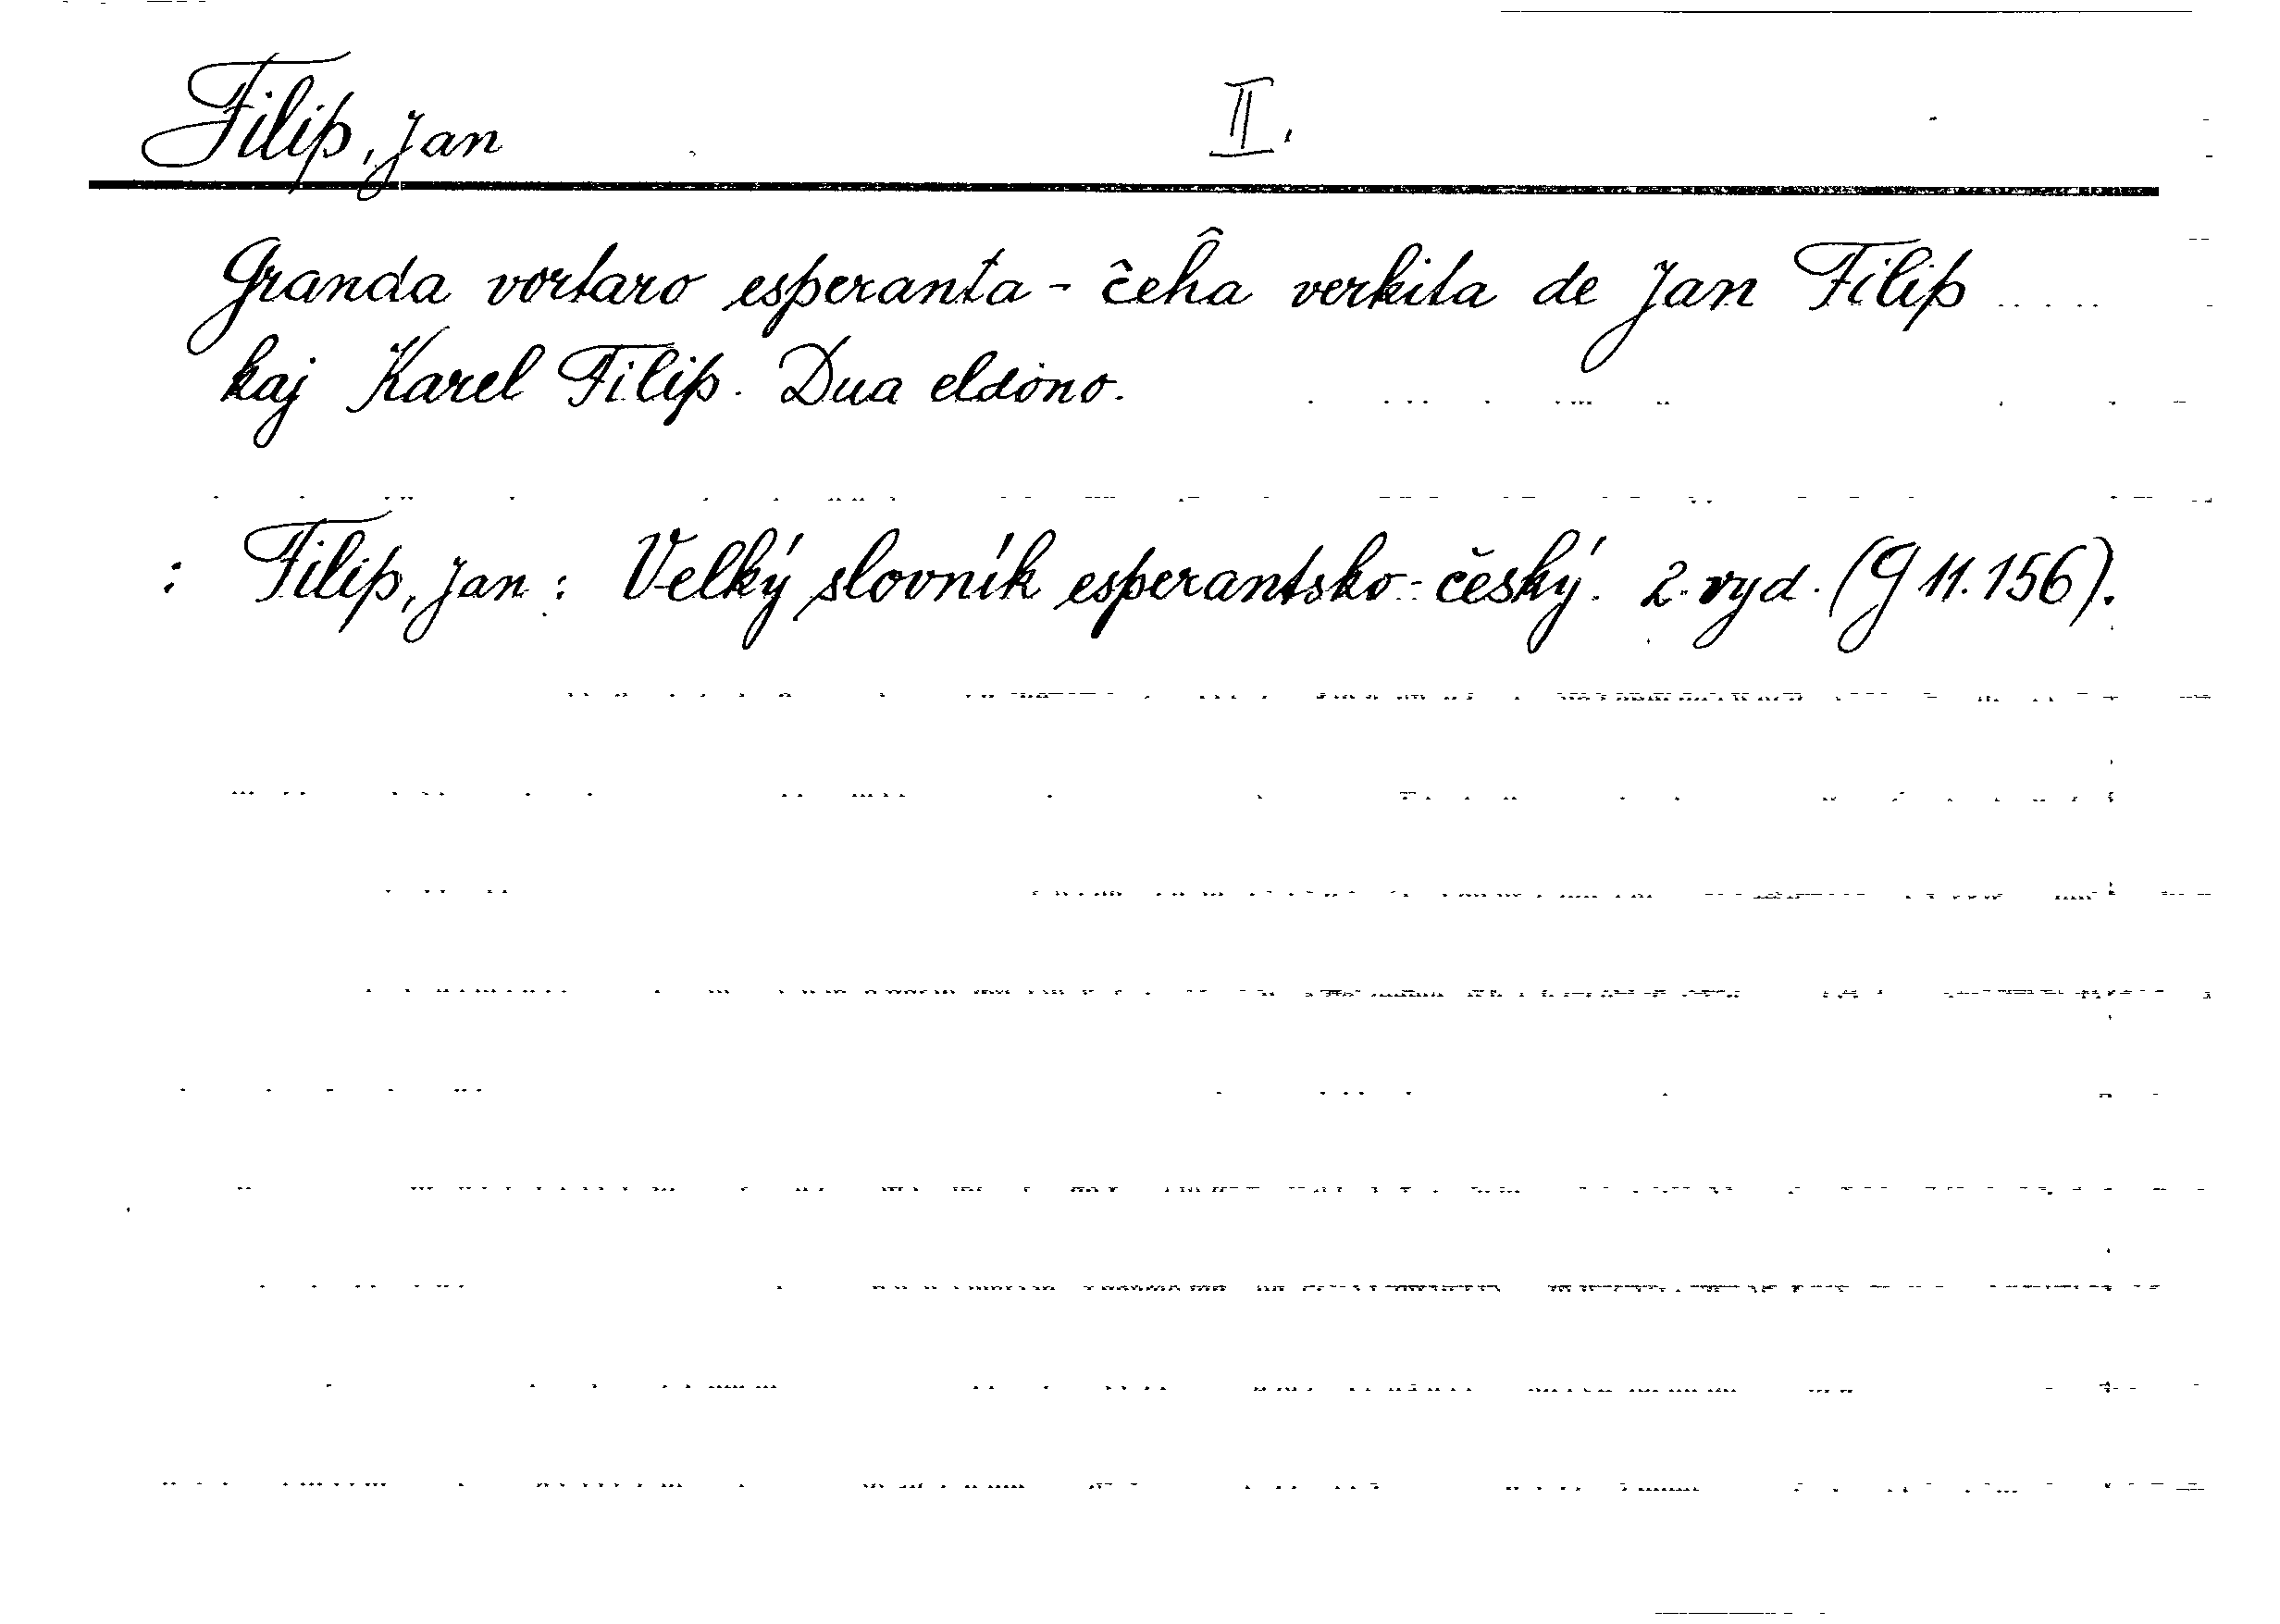 Filip, Jan II.
Granda vortaro esperanta - ĉeĥa verkita de Jan Filip
kaj Karel Filip. Dua eldono.
: Filip, Jan : Velký slovník esperantsko-český. 2. vyd. (G 11.156).